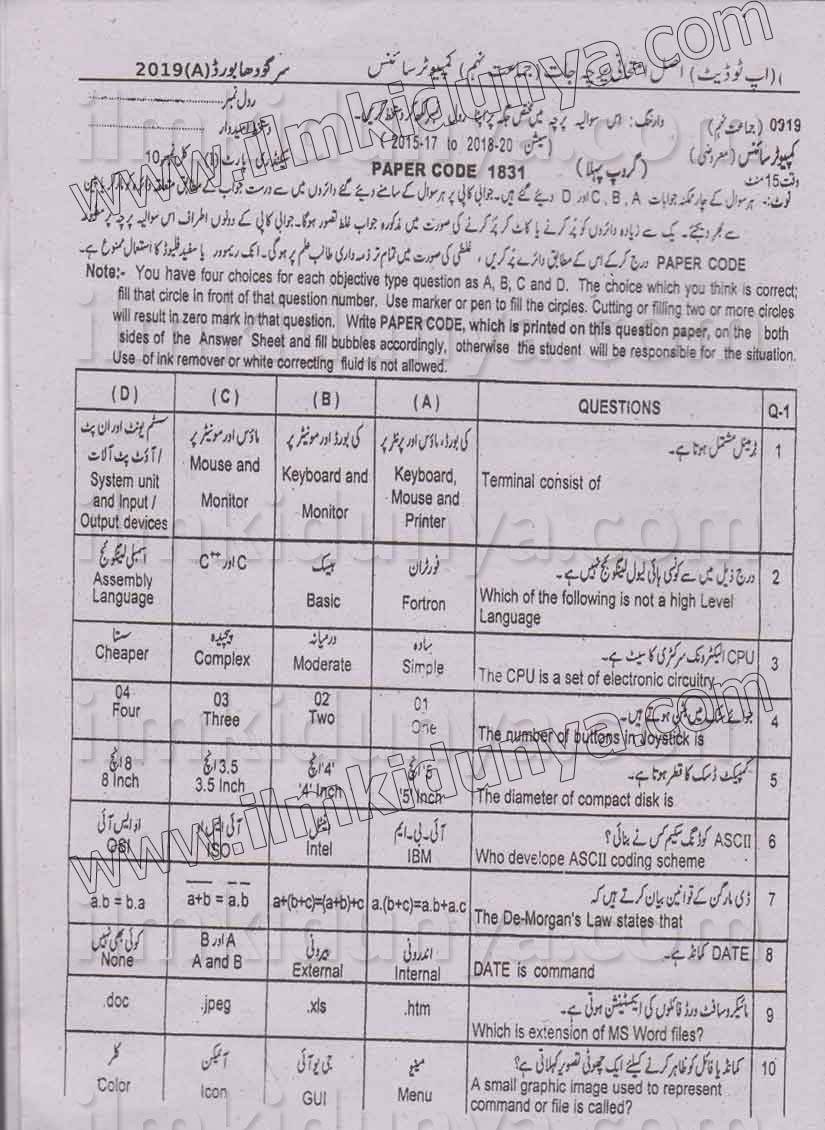 (اپ ٹو ڈیٹ) اصل امتحانی پرچہ جات (جماعت نہم) کمپیوٹر سائنس سرگودھا بورڈ 2019(A)
0919 (جماعت نہم) وارننگ: اس سوالیہ پرچہ میں مختص جگہ پر اپنا رول نمبر لکھ کر دستخط کریں۔ رول نمبر
کمپیوٹر سائنس (معروضی) (سیشن 2015-17 to 2018-20) دستخط امیدوار
وقت 15 منٹ (گروپ پہلا) PAPER CODE 1831 سیکنڈری پارٹ (I) کل نمبر 10
نوٹ:- ہر سوال کے چار ممکنہ جوابات A، B، C اور D دیئے گئے ہیں۔ جوابی کاپی پر ہر سوال کے سامنے دیئے گئے دائروں میں سے درست جواب کے مطابق متعلقہ دائرہ کو مارکر یا پین
سے بھر دیجئے۔ ایک سے زیادہ دائروں کو پُر کرنے یا کاٹ کر پُر کرنے کی صورت میں مذکورہ جواب غلط تصور ہوگا۔ جوابی کاپی کے دونوں اطراف اس سوالیہ پرچہ پر مطبوعہ
PAPER CODE درج کرکے اس کے مطابق دائرے پُر کریں، غلطی کی صورت میں تمام تر ذمہ داری طالب علم پر ہوگی۔ انک ریموور یا سفید فلیوڈ کا استعمال ممنوع ہے۔
Note:- You have four choices for each objective type question as A, B, C and D. The choice which you think is correct;
fill that circle in front of that question number. Use marker or pen to fill the circles. Cutting or filling two or more circles
will result in zero mark in that question. Write PAPER CODE, which is printed on this question paper, on the both
sides of the Answer Sheet and fill bubbles accordingly, otherwise the student will be responsible for the situation.
Use of ink remover or white correcting fluid is not allowed.
(D) (C) (B) (A) QUESTIONS Q-1
سسٹم یونٹ اور ان پٹ / آؤٹ پٹ آلات ماؤس اور مونیٹر پر کی بورڈ اور مونیٹر پر کی بورڈ، ماؤس اور پرنٹر پر ٹرمینل مشتمل ہوتا ہے۔ 1
System unit and Input / Output devices Mouse and Monitor Keyboard and Monitor Keyboard, Mouse and Printer Terminal consist of
اسمبلی لینگوئج C اور C++ بیسک فورٹران درج ذیل میں سے کونسی ہائی لیول لینگوئج نہیں ہے۔ 2
Assembly Language Basic Fortron Which of the following is not a high Level Language
سستا پیچیدہ درمیانہ سادہ CPU الیکٹرونک سرکٹری کا سیٹ ہے۔ 3
Cheaper Complex Moderate Simple The CPU is a set of electronic circuitry
04 03 02 01 جوائے سٹک میں بٹن ہوتے ہیں۔ 4
Four Three Two One The number of buttons in Joystick is
8 انچ 3.5 انچ '4' انچ '5' انچ کمپیکٹ ڈسک کا قطر ہوتا ہے۔ 5
8 Inch 3.5 Inch '4' Inch '5' Inch The diameter of compact disk is
او ایس آئی آئی ایس او انٹل آئی۔بی۔ایم ASCII کوڈنگ سکیم کس نے بنائی؟ 6
OSI ISO Intel IBM Who develope ASCII coding scheme
a.b = b.a a̅+̅b̅ = a̅.b̅ a+(b+c)=(a+b)+c a.(b+c)=a.b+a.c ڈی مارگن کے قوانین بیان کرتے ہیں کہ 7
The De-Morgan's Law states that
کوئی بھی نہیں A اور B بیرونی اندرونی DATE کمانڈ ہے۔ 8
None A and B External Internal DATE is command
.doc .jpeg .xls .htm مائیکروسافٹ ورڈ فائلوں کی ایکسٹینشن ہوتی ہے۔ 9
Which is extension of MS Word files?
کلر آئیکن جی یو آئی مینیو کمانڈ یا فائل کو ظاہر کرنے کیلئے ایک چھوٹی تصویر کہلاتی ہے؟ 10
Color Icon GUI Menu A small graphic image used to represent command or file is called?
www.ilmkidunya.com
www.ilmkidunya.com
ilmkidunya.com
ilmkidunya.com
ilmkidunya.com
ilmkidunya.com
ilmkidunya.com
ilmkidunya.com